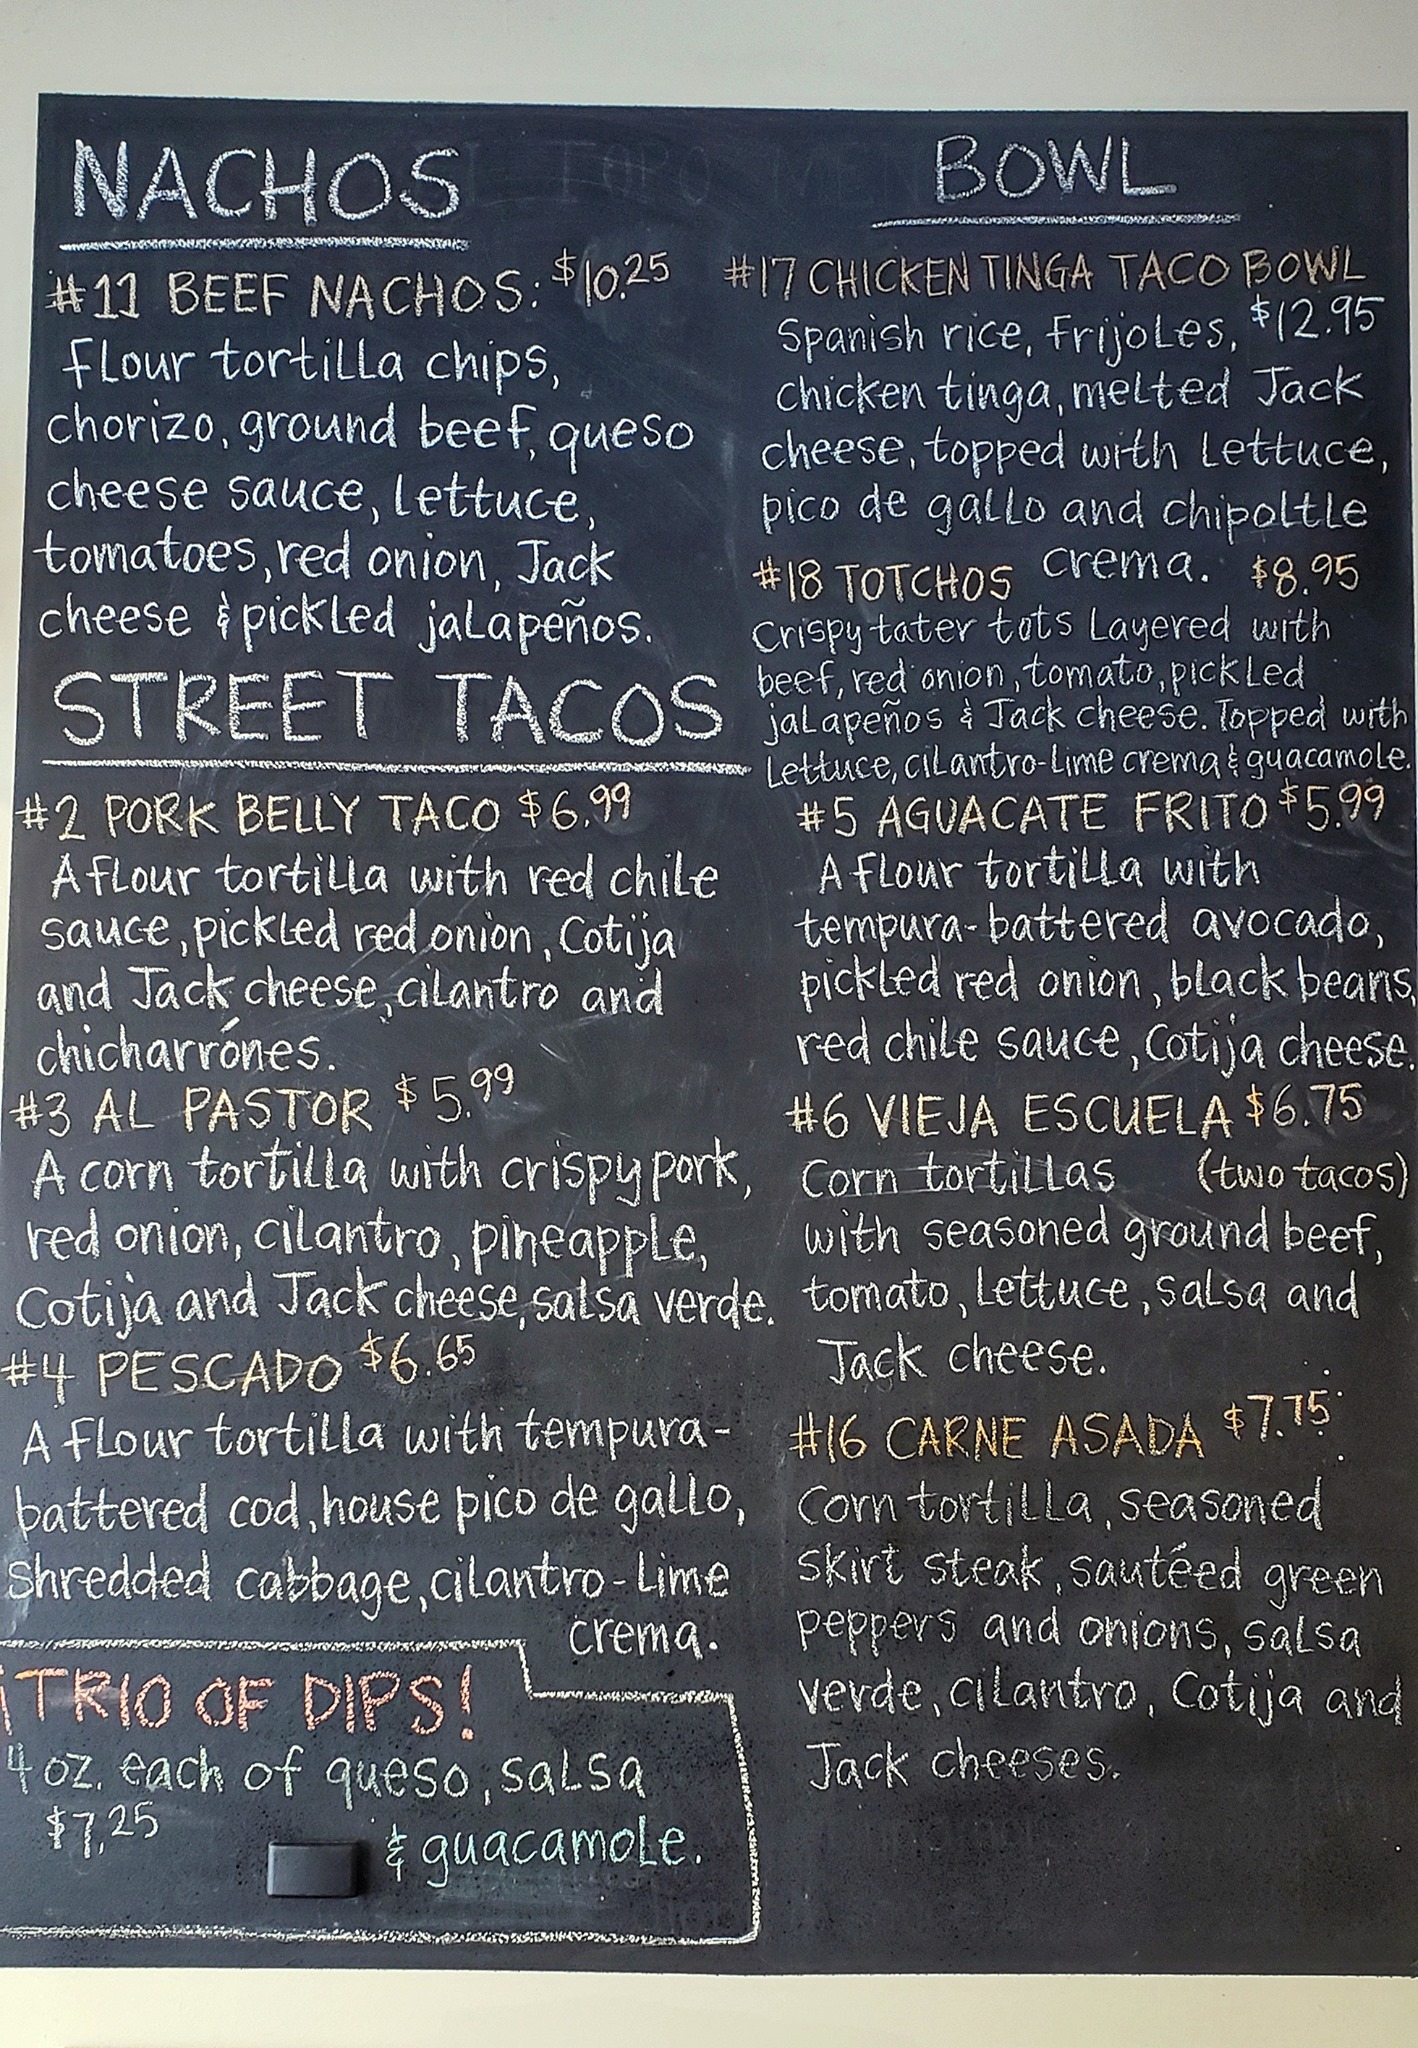 NACHOS
#11 BEEF NACHOS: $10.25
Flour tortilla chips,
chorizo, ground beef, queso
cheese sauce, lettuce,
tomatoes, red onion, Jack
cheese & pickled jalapeños.
STREET TACOS
#2 PORK BELLY TACO $6.99
A flour tortilla with red chile
sauce, pickled red onion, Cotija
and Jack cheese, cilantro and
chicharrónes.
#3 AL PASTOR $5.99
A corn tortilla with crispy pork,
red onion, cilantro, pineapple,
Cotija and Jack cheese, salsa verde.
#4 PESCADO $6.65
A flour tortilla with tempura-
battered cod, house pico de gallo,
shredded cabbage, cilantro-lime
crema.
¡TRIO OF DIPS!
4 oz. each of queso, salsa
$7.25 & guacamole.
BOWL
#17 CHICKEN TINGA TACO BOWL
Spanish rice, frijoles, $12.95
chicken tinga, melted Jack
cheese, topped with lettuce,
pico de gallo and chipoltle
crema.
#18 TOTCHOS $8.95
Crispy tater tots layered with
beef, red onion, tomato, pickled
jalapeños & Jack cheese. Topped with
lettuce, cilantro-lime crema & guacamole.
#5 AGUACATE FRITO $5.99
A flour tortilla with
tempura-battered avocado,
pickled red onion, black beans,
red chile sauce, Cotija cheese.
#6 VIEJA ESCUELA $6.75
Corn tortillas (two tacos)
with seasoned ground beef,
tomato, lettuce, salsa and
Jack cheese.
#16 CARNE ASADA $7.75
Corn tortilla, seasoned
skirt steak, sautéed green
peppers and onions, salsa
verde, cilantro, Cotija and
Jack cheeses.